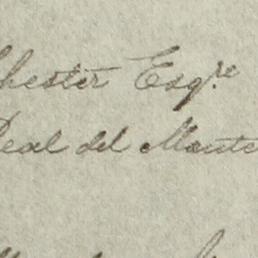 Chester Esqre
Real del Monte